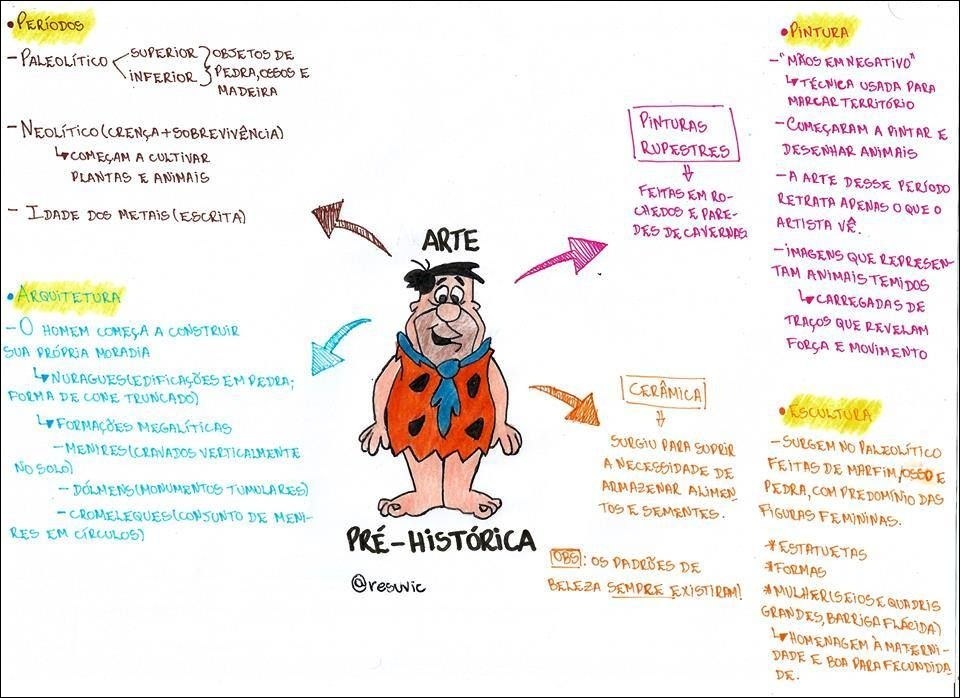 •PERÍODOS
-PALEOLÍTICO
SUPERIOR
INFERIOR
OBJETOS DE
PEDRA, OSSOS E
MADEIRA
-NEOLÍTICO (CRENÇA+SOBREVIVÊNCIA)
COMEÇAM A CULTIVAR
PLANTAS E ANIMAIS
- IDADE DOS METAIS (ESCRITA)
•ARQUITETURA
-O HOMEM COMEÇA A CONSTRUIR
SUA PRÓPRIA MORADIA
NURAGUES (EDIFICAÇÕES EM PEDRA;
FORMA DE CONE TRUNCADO)
FORMAÇÕES MEGALÍTICAS
-MENIRES (CRAVADOS VERTICALMENTE
NO SOLO)
-DÓLMENS (MONUMENTOS TUMULARES)
-CROMELEQUES (CONJUNTO DE MENI-
RES EM CÍRCULOS)
ARTE
PRÉ-HISTÓRICA
@resuvic
PINTURAS
RUPESTRES
FEITAS EM RO-
CHEDOS E PARE-
DES DE CAVERNAS
•PINTURA
-"MÃOS EM NEGATIVO"
TÉCNICA USADA PARA
MARCAR TERRITÓRIO
-COMEÇARAM A PINTAR E
DESENHAR ANIMAIS
-A ARTE DESSE PERÍODO
RETRATA APENAS O QUE O
ARTISTA VÊ.
-IMAGENS QUE REPRESEN-
TAM ANIMAIS TEMIDOS
CARREGADAS DE
TRAÇOS QUE REVELAM
FORÇA E MOVIMENTO
CERÂMICA
SURGIU PARA SUPRIR
A NECESSIDADE DE
ARMAZENAR ALIMEN-
TOS E SEMENTES.
OBS: OS PADRÕES DE
BELEZA SEMPRE EXISTIRAM!
•ESCULTURA
-SURGEM NO PALEOLÍTICO
FEITAS DE MARFIM, OSSO E
PEDRA, COM PREDOMÍNIO DAS
FIGURAS FEMININAS.
*ESTATUETAS
*FORMAS
*MULHER (SEIOS E QUADRIS
GRANDES, BARRIGA FLÁCIDA)
HOMENAGEM À MATERNI-
DADE E BOA PARA FECUNDIDA
DE.